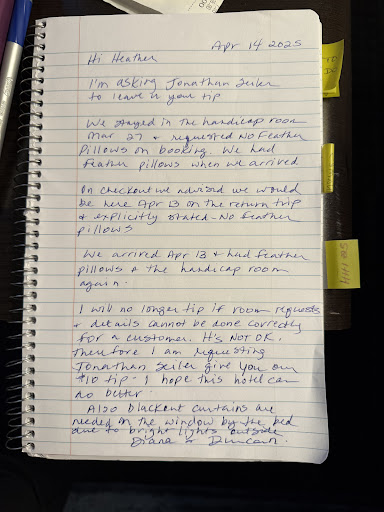 Apr 14 2025
Hi Heather
I'm asking Jonathan Seiler
to leave u your tip
We stayed in the handicap room
Mar 27 & requested No Feather
Pillows on booking. We had
feather pillows when we arrived
On checkout we advised we would
be here Apr 13 on the return trip
& explicitly stated - No feather
pillows
We arrived Apr 13 & had feather
pillows & the handicap room
again.
I will no longer tip if room requests
& details cannot be done correctly
for a customer. It's NOT OK.
Therefore I am requesting
Jonathan Seiler give you our
$10 tip - I hope this hotel can
do better.
Also blackout curtains are
needed on the window by the bed
due to bright lights outside
Diana & Duncan